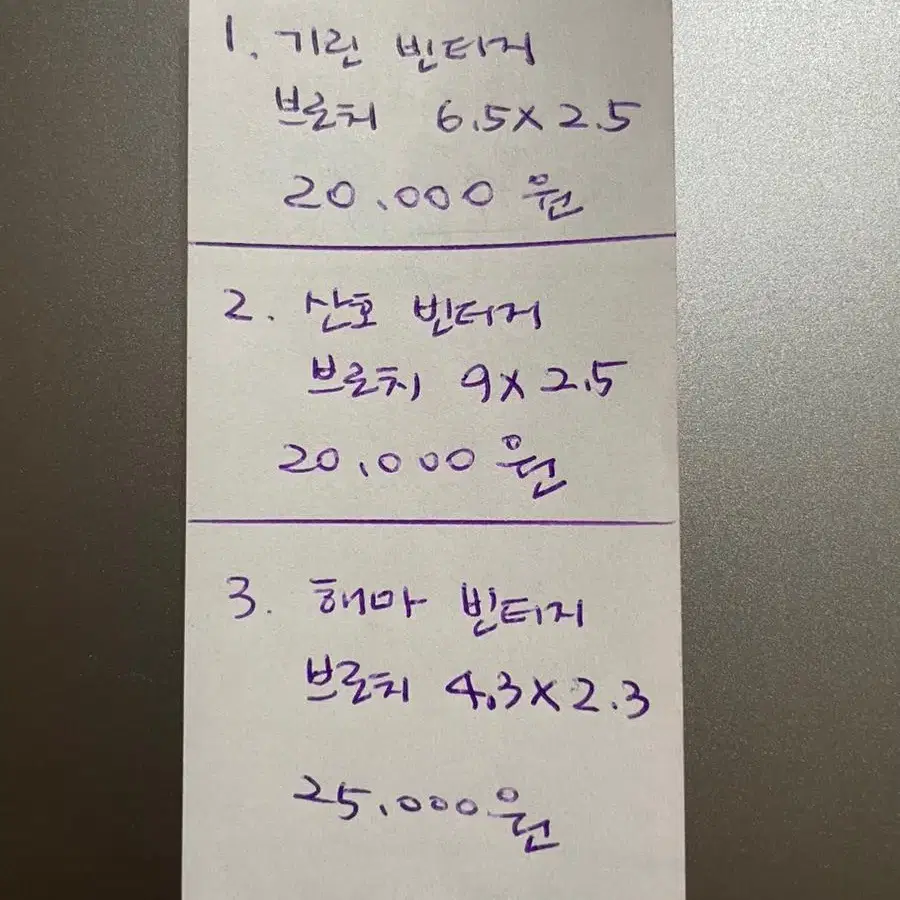 1. 기린 빈티지
브로치 6.5×2.5
20.000 원
2. 산호 빈티지
브로치 9×2.5
20.000 원
3. 해마 빈티지
브로치 4.3×2.3
25.000원